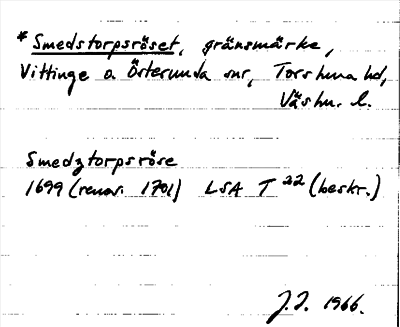 * Smedstorpsröset, gränsmärke,
Vittinge o Österunda snr, Torstuna hd,
Västm. l.
Smedztorpsröse
1699 (renov. 1701) LSA T 22 (beskr.)
J.I. 1966.